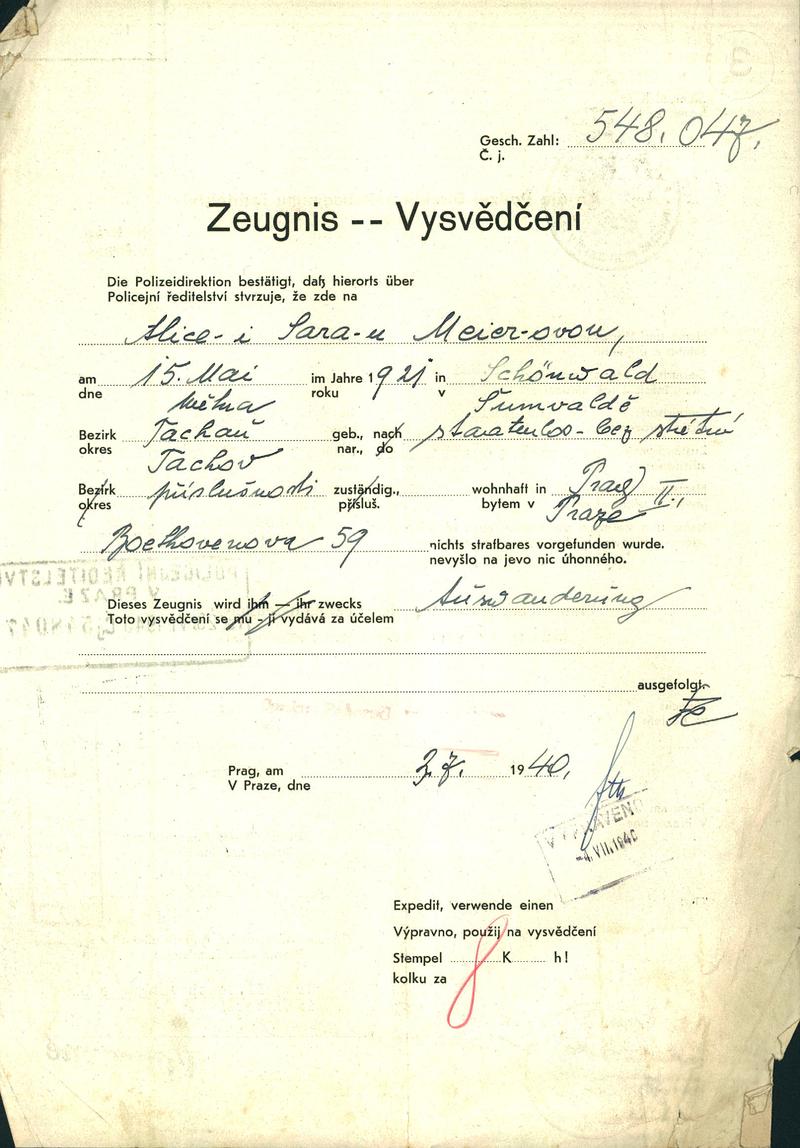 Gesch. Zahl: 548.047.
Č. j.
Zeugnis -- Vysvědčení
Die Polizeidirektion bestätigt, daß hierorts über
Policejní ředitelství stvrzuje, že zde na
Alice-i Sara-u Meier-ovou,
am 15. Mai im Jahre 1921 in Schönwald
dne května roku v Šumvaldě
Bezirk Tachau geb., nach staatenlos - bez státní
okres Tachov nar., do
Bezirk příslušnosti zuständig., wohnhaft in Prag II.,
okres přísluš. bytem v Praze
Beethovenova 59 nichts strafbares vorgefunden wurde.
nevyšlo na jevo nic úhonného.
Dieses Zeugnis wird ihm — ihr zwecks Auswanderung
Toto vysvědčení se mu - jí vydává za účelem
ausgefolgt.
Prag, am 3.7. 1940.
V Praze, dne
VYPRAVENO
-4. VII. 1940
Expedit, verwende einen
Výpravno, použij na vysvědčení
Stempel 8 K h!
kolku za
POLICEJNÍ ŘEDITELSTVÍ
V PRAZE
548047